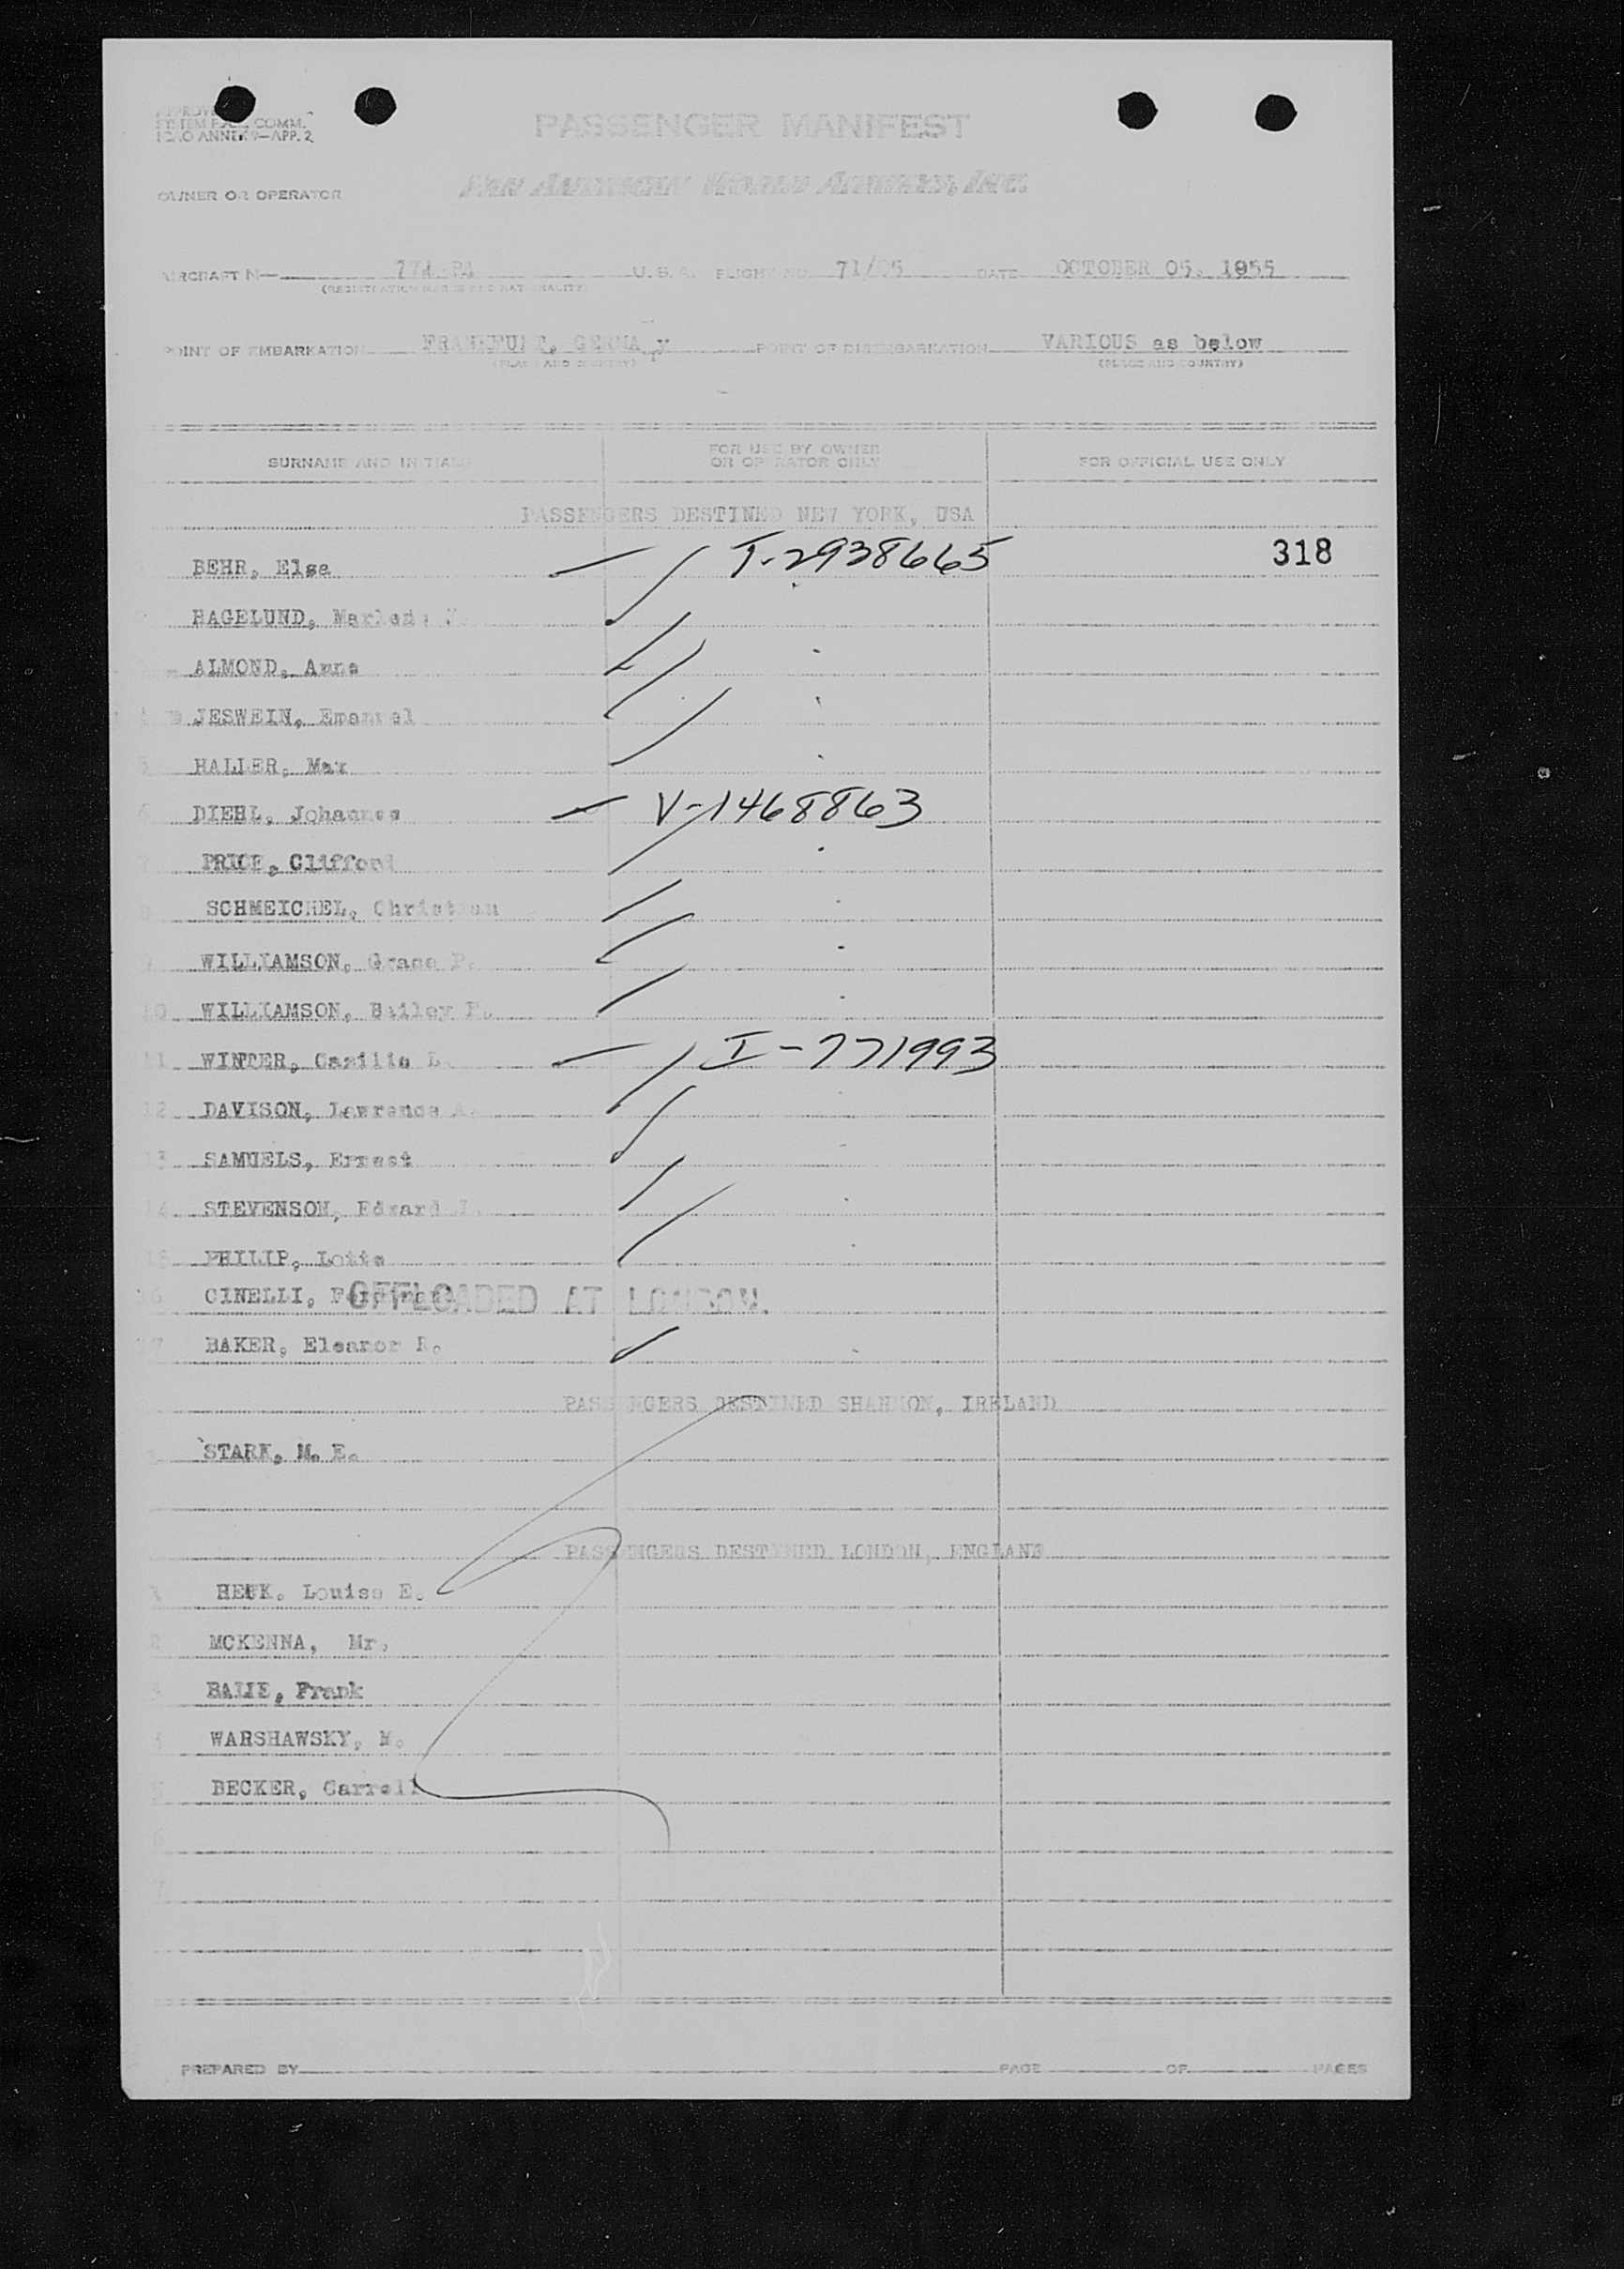 COMM.
ANNEX 9—APP. 2
PASSENGER MANIFEST
OWNER OR OPERATOR PAN AMERICAN WORLD AIRWAYS, INC.
AIRCRAFT N— U.S.A. FLIGHT NO. DATE OCTOBER 05, 1955
(REGISTRATION MARKS AND NATIONALITY)
POINT OF EMBARKATION FRANKFURT, GERMANY POINT OF DISEMBARKATION VARIOUS as below
(PLACE AND COUNTRY) (PLACE AND COUNTRY)
SURNAME AND INITIALS FOR USE BY OWNER OR OPERATOR ONLY FOR OFFICIAL USE ONLY
PASSENGERS DESTINED NEW YORK, USA
BEHR, Else I-2938665 318
HAGELUND,
ALMOND, Anna
JESWEIN, Emanuel
5 HALLER, Max
6 DIEHL, Johannes V-1468863
7 PRICE, Clifford
8 SCHMEICHEL, Christian
9 WILLIAMSON, Grace P.
10 WILLIAMSON, Bailey P.
11 WINTER, I-771993
12 DAVISON, Lawrence A.
13 SAMUELS, Ernest
14 STEVENSON, Edward
15 PHILIP, Lotte
16 CINELLI, OFFLOADED AT LONDON.
17 BAKER, Eleanor R.
PASSENGERS DESTINED SHANNON, IRELAND
STARK, M. E.
PASSENGERS DESTINED LONDON, ENGLAND
HEUK, Louise E.
2 MCKENNA, Mr.
Frank
WARSHAWSKY, M.
BECKER, Carroll
6
7
PREPARED BY PAGE OF PAGES